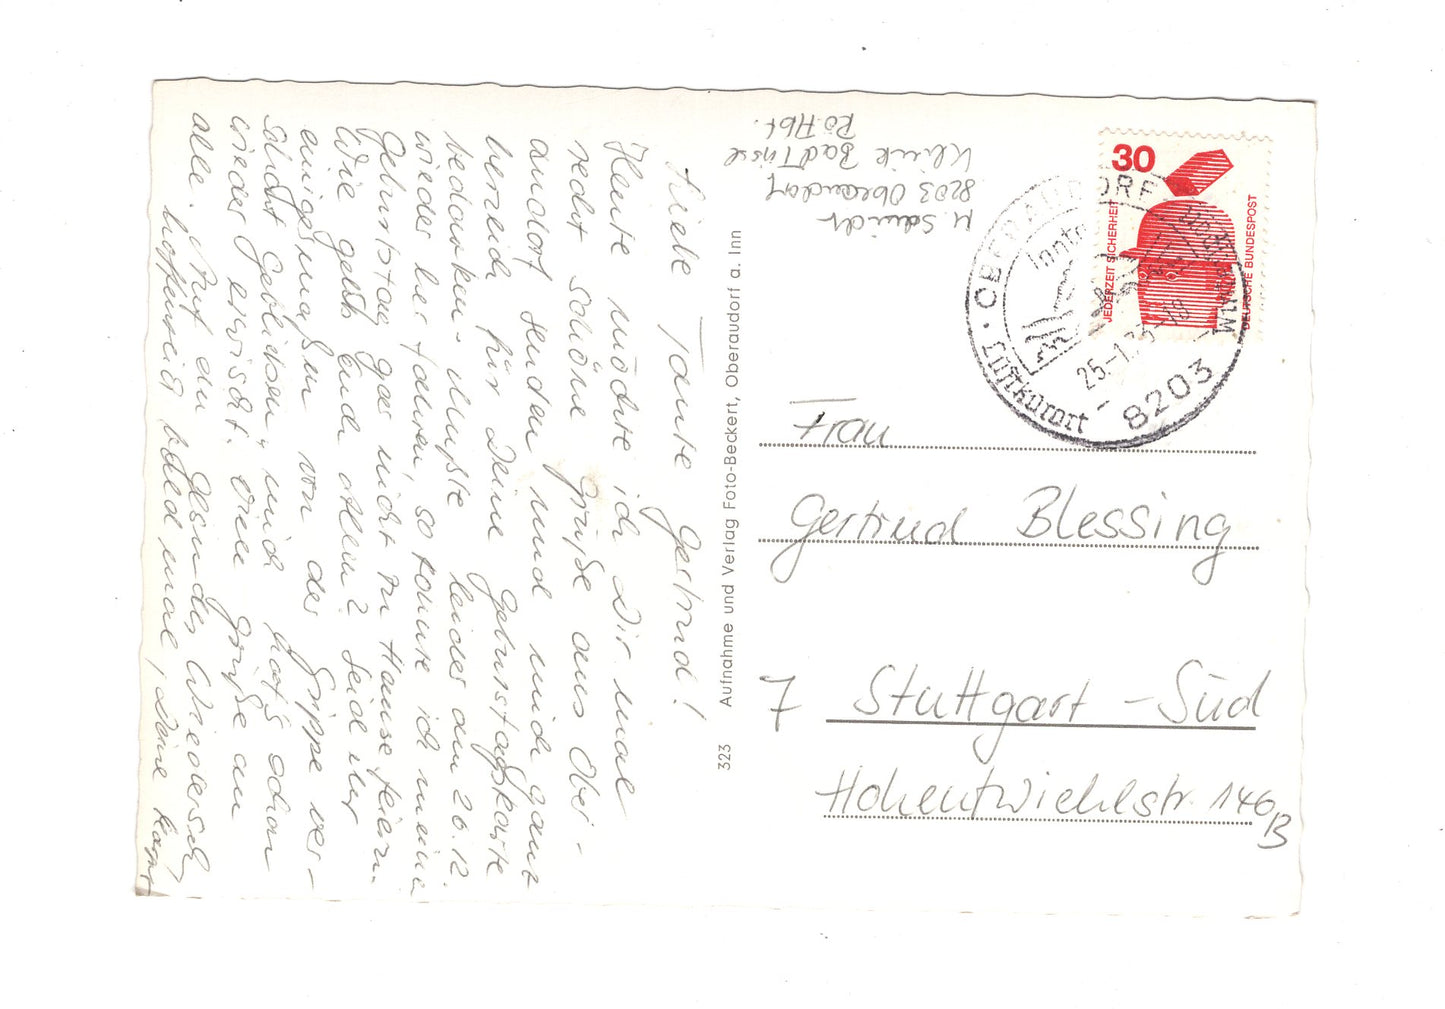 Liebe Tante Gertrud!
Heute möchte ich Dir mal
recht schöne Grüße aus Ober-
audorf senden und mich ganz
herzlich für Deine Geburtstagskarte
bedanken. Mußte leider am 26.12.
wieder herfahren, so konnte ich meinen
Geburtstag gar nicht zu Hause feiern.
Wie geht's Euch allen? Seid ihr
einigermaßen von der Grippe ver-
schont geblieben, und hat's schon
wieder erwischt. Viele Grüße an
alle. Auf ein gesundes Wiedersehn
hoffentlich bald mal, Deine
323 Aufnahme und Verlag Foto-Beckert, Oberaudorf a. Inn
8203 Oberaudorf
Klinik Bad Trissl
Rö. Abt.
30
JEDERZEIT SICHERHEIT
DEUTSCHE BUNDESPOST
OBERAUDORF
Luftkurort
8203
Frau
Gertrud Blessing
7 Stuttgart-Süd
Hohentwielstr. 146
B